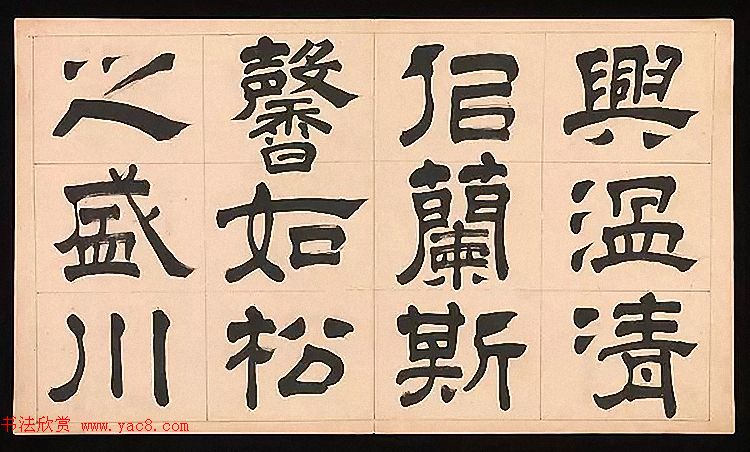 興溫清
佀蘭斯
馨如松
之盛川
书法欣赏 www.yac8.com